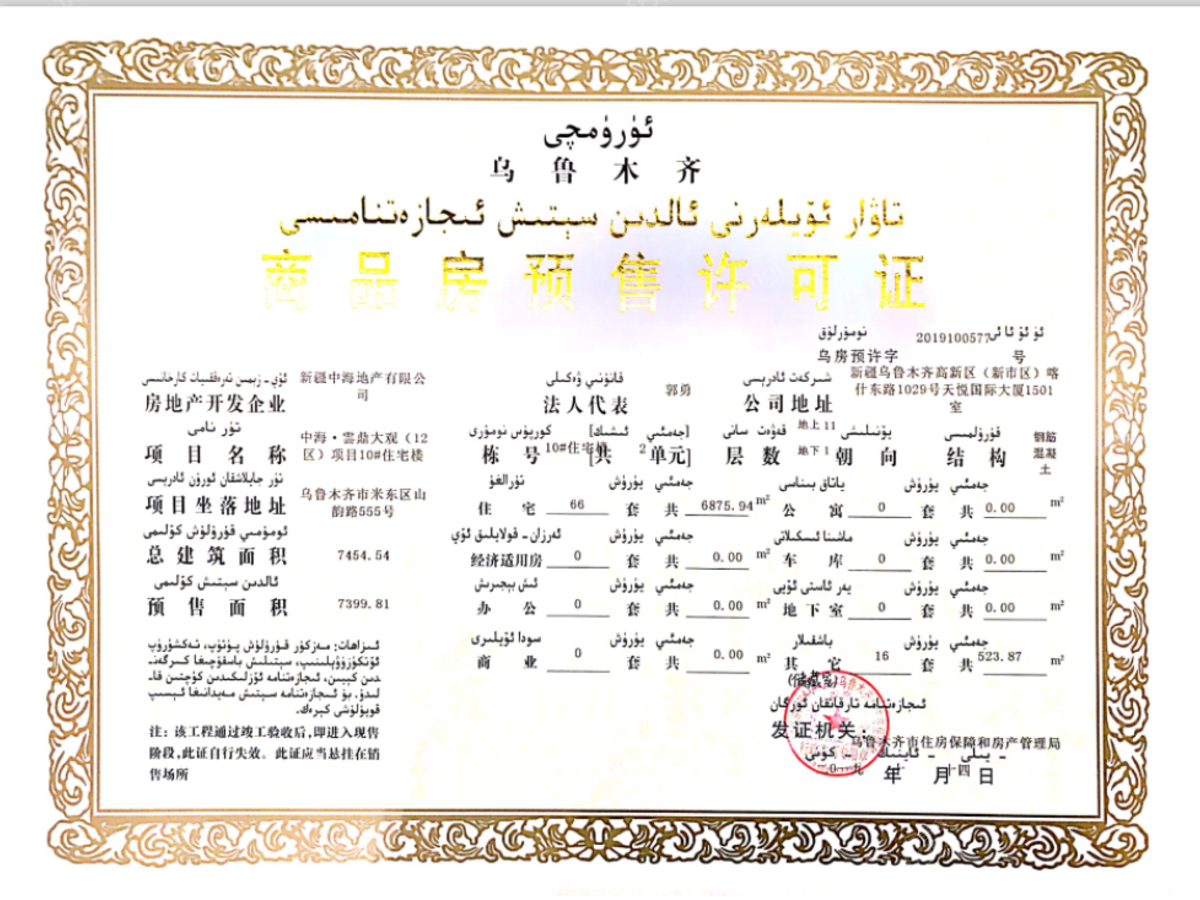 ئۈرۈمچى
乌鲁木齐
تاۋار ئۆيلەرنى ئالدىن سېتىش ئىجازەتنامىسى
商品房预售许可证
نومۇرلۇق 2019100577
乌房预许字 号
ئۆي-زېمىن تەرەققىيات كارخانىسى
房地产开发企业 新疆中海地产有限公司
قانۇنىي ۋەكىلى
法人代表 郭勇
شىركەت ئادرېسى
公司地址 新疆乌鲁木齐高新区（新市区）喀
什东路1029号天悦国际大厦1501
室
تۈر نامى
项目名称 中海·雲鼎大观（12
区）项目10#住宅楼
كورپۇس نومۇرى [جەمئىي ئىشىك]
栋号 10#住宅楼 [共 2 单元]
قەۋەت سانى
层数 地上11
地下1
يۆنىلىشى
朝向
قۇرۇلمىسى
结构 钢筋
混凝
土
تۈر جايلاشقان ئورۇن ئادرېسى
项目坐落地址 乌鲁木齐市米东区山
韵路555号
تۇرالغۇ يۈرۈش جەمئىي
住宅 66 套 共 6875.94 m²
ياتاق بىناسى يۈرۈش جەمئىي
公寓 0 套 共 0.00 m²
ئومۇمىي قۇرۇلۇش كۆلىمى
总建筑面积 7454.54
ئەرزان-قولايلىق ئۆي يۈرۈش جەمئىي
经济适用房 0 套 共 0.00 m²
ماشىنا ئىسكىلاتى يۈرۈش جەمئىي
车库 0 套 共 0.00 m²
ئالدىن سېتىش كۆلىمى
预售面积 7399.81
ئىش بېجىرىش يۈرۈش جەمئىي
办公 0 套 共 0.00 m²
يەر ئاستى ئۆيى يۈرۈش جەمئىي
地下室 0 套 共 0.00 m²
سودا ئۆيلىرى يۈرۈش جەمئىي
商业 0 套 共 0.00 m²
باشقىلار يۈرۈش جەمئىي
其它 16 套 共 523.87 m²
(储藏室)
ئىزاھات: مەزكۇر قۇرۇلۇش پۈتۈپ، تەكشۈرۈپ
ئۆتكۈزۈۋېلىنىپ، سېتىلىش باسقۇچىغا كىرگەن-
دىن كېيىن، ئىجازەتنامە ئۆزلىكىدىن كۈچتىن قا-
لىدۇ. بۇ ئىجازەتنامە سېتىش مەيدانىغا ئېسىپ
قويۇلۇشى كېرەك.
注：该工程通过竣工验收后，即进入现售
阶段，此证自行失效。此证应当悬挂在销
售场所
ئىجازەتنامە تارقاتقان ئورگان
发证机关：
乌鲁木齐市住房保障和房产管理局
- يىلى - ئاينىڭ - كۈنى
年 月 十四 日